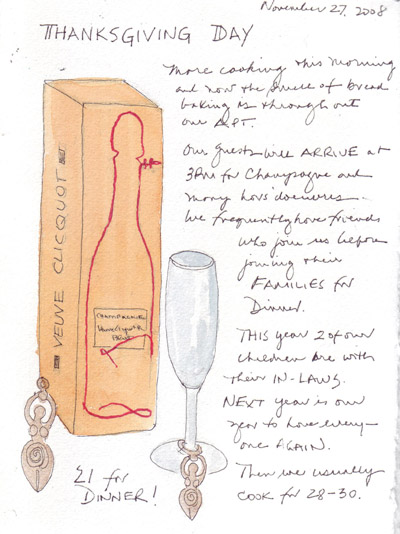 November 27, 2008
THANKSGIVING DAY
More cooking this morning
and now the smell of bread
baking is throughout
our APT.
Our guests will ARRIVE at
3PM for Champagne and
many hors' doeuvres.
We frequently have friends
who join us before
joining their
FAMILIES for
Dinner.
THIS year 2 of our
children are with
their IN-LAWS.
NEXT year is our
year to have every-
one AGAIN.
Then we usually
COOK for 28-30.
VEUVE CLICQUOT
CHAMPAGNE
Veuve Clicquot
21 for
DINNER!